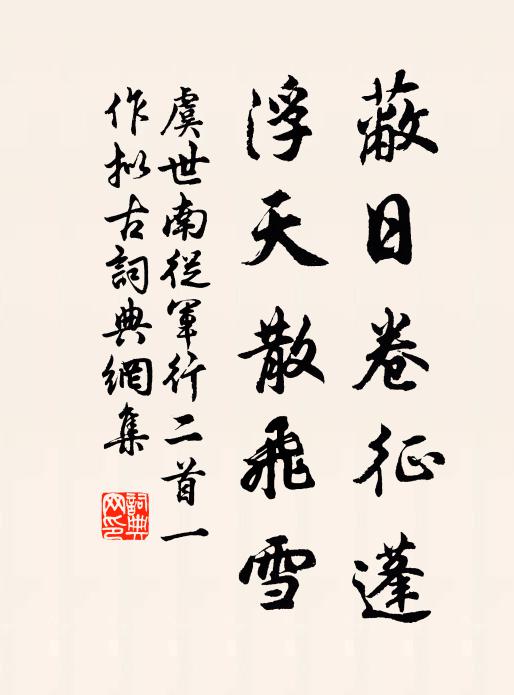 蔽日卷征蓬
浮天散飛雪
虞世南從軍行二首一
作拟古詞典網集
詞典網印